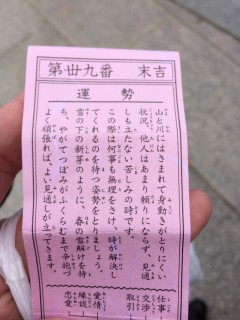 第丗九番 末吉
運勢
山と川にはさまれて身動きがとりにくい
状況。他人はあまり頼りにならず、見通
しも立たない苦しみの時です。
この際は何事も無理をさけ、時が解決し
てくれるのを待つ姿勢をとりましょう。
雪の下の新芽のように、春の雪解けを待
ち、やがてつぼみがふくらむまで辛抱づ
よく頑張れば、よい見通しが立ってきます。
仕事
交渉
取引
愛情
縁談
恋愛